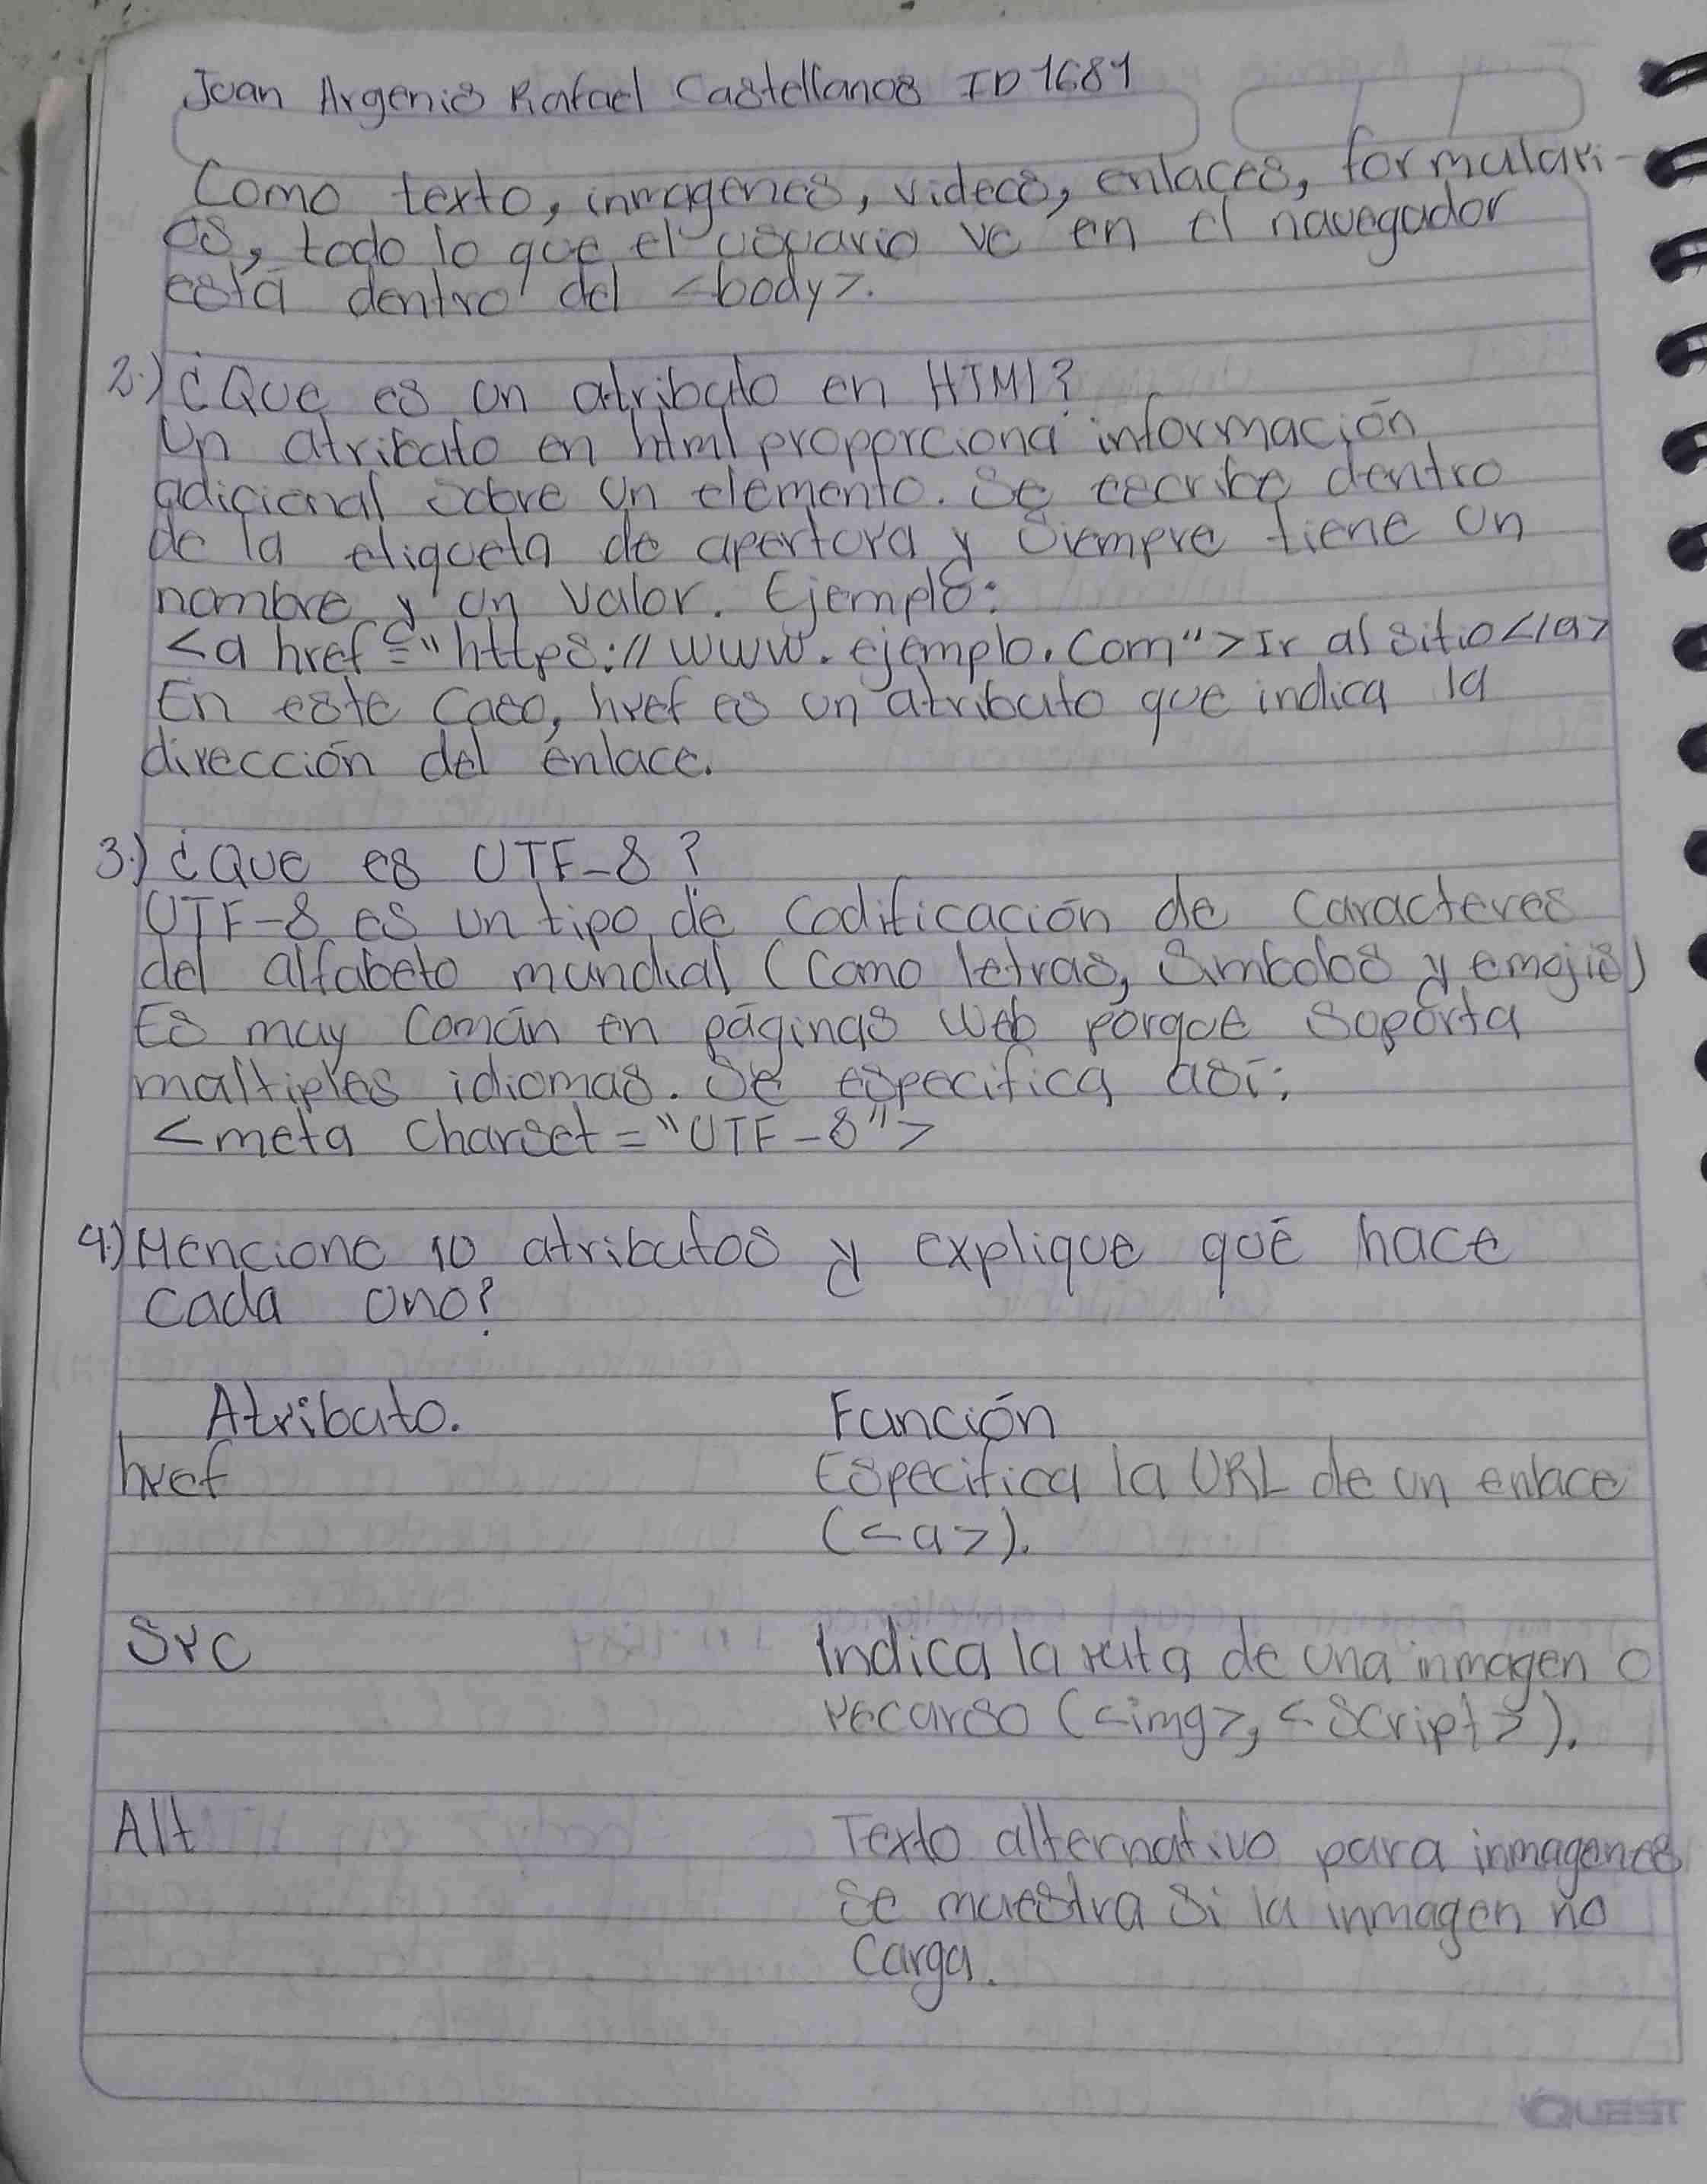 Juan Argenis Rafael Castellanos ID 1684
Como texto, inmagenes, videos, enlaces, formulari-
os, todo lo que el usuario ve en el navegador
está dentro del <body>.
2.) ¿Que es un atributo en HTMl?
Un atributo en html proporciona información
adicional sobre un elemento. Se escribe dentro
de la etiqueta de apertura y siempre tiene un
nombre y un valor. Ejemplo:
<a href="https://www.ejemplo.com">Ir al sitio</a>
En este caso, href es un atributo que indica la
dirección del enlace.
3.) ¿Que es UTF-8?
UTF-8 es un tipo de codificación de caracteres
del alfabeto mundial (como letras, simbolos y emojis)
Es muy común en páginas web porque soporta
multiples idiomas. Se especifica así:
<meta charset="UTF-8">
4.) Mencione 10 atributos y explique qué hace
cada uno?
Atributo. Función
href Especifica la URL de un enlace
(<a>).
Src Indica la ruta de una inmagen o
recurso (<img>, <script>).
Alt Texto alternativo para inmagenes
se muestra si la inmagen no
carga.
QUEST